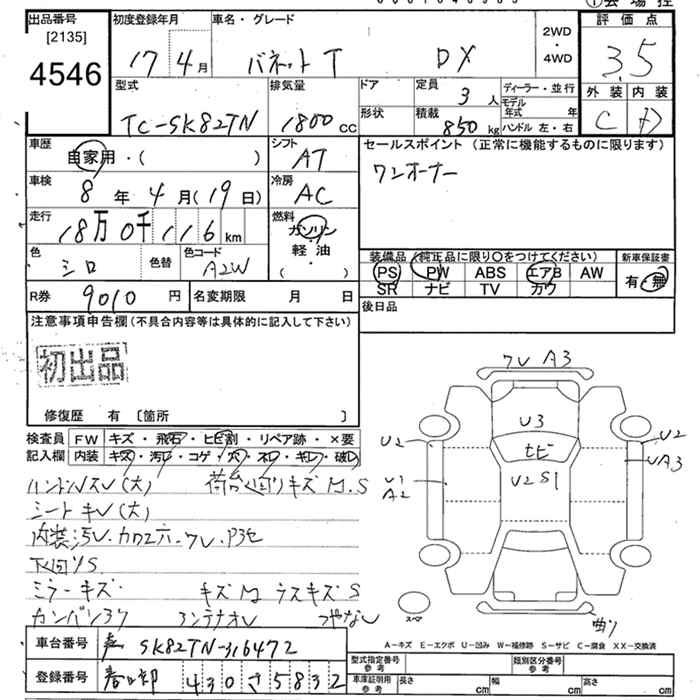 出品番号 初度登録年月 車名・グレード 2WD・4WD 評価点
[2135]
4546
17年 4月 バネットT DX 3.5
外装 内装
C D
型式 排気量 ドア 定員 3人 ディーラー・並行
モデル年式 年
TC-SK82TN 1800cc 形状 積載 850kg ハンドル 左・右
車歴 シフト セールスポイント (正常に機能するものに限ります)
自家用・( ) AT
ワンオーナー
車検 冷房
8年 4月(19日) AC
走行 燃料
18万0千116km ガソリン
軽・油
( )
色 色替 色コード
シロ A2W
装備品 (純正品に限り○をつけてください) 新車保証書
PS PW ABS エアB AW 有・無
SR ナビ TV カワ
R券 9010円 名変期限 月 日
後日品
注意事項申告欄(不具合内容等は具体的に記入して下さい)
初出品
修復歴 有 [箇所 ]
検査員 FW キズ・飛石・ヒビ割・リペア跡・×要
記入欄 内装 キズ・汚れ・コゲ・穴・スレ・キレ・破れ
ハンドルスレ(大) 荷台 キズ M.S
シートキレ(大)
内装汚レ
下回りS
ミラーキズ キズM ラスキズS
カンバン
7U A3
U3
ヒビ
U2 S1
U2
U1
A2
U2
UA3
曲り
スペア
A-キズ E-エクボ U-凹み W-補修跡 S-サビ C-腐食 XX-交換済
車台番号 SK82TN-316472
登録番号 春日部 430 さ 5832
型式指定番号 参考 類別区分番号 参考
車庫証明用 参考 長さ cm 幅 cm 高さ cm